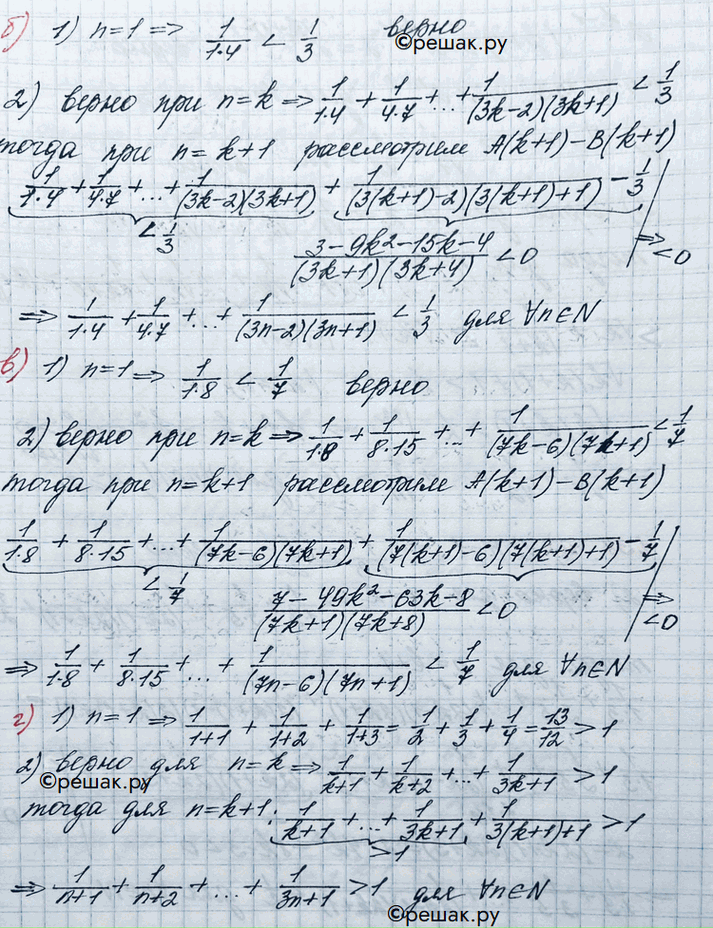 б) 1) n=1 => 1/(1·4) < 1/3 верно
©решак.ру
2) верно при n=k => 1/(1·4) + 1/(4·7) + ... + 1/((3k-2)(3k+1)) < 1/3
тогда при n=k+1 рассмотрим A(k+1)-B(k+1)
1/(1·4) + 1/(4·7) + ... + 1/((3k-2)(3k+1)) + 1/((3(k+1)-2)(3(k+1)+1)) - 1/3
< 1/3
(3-9k²-15k-4)/((3k+1)(3k+4)) < 0 => < 0
=> 1/(1·4) + 1/(4·7) + ... + 1/((3n-2)(3n+1)) < 1/3 для ∀n∈N
в) 1) n=1 => 1/(1·8) < 1/7 верно
2) верно при n=k => 1/(1·8) + 1/(8·15) + ... + 1/((7k-6)(7k+1)) < 1/7
тогда при n=k+1 рассмотрим A(k+1)-B(k+1)
1/(1·8) + 1/(8·15) + ... + 1/((7k-6)(7k+1)) + 1/((7(k+1)-6)(7(k+1)+1)) - 1/7
< 1/7
(7-49k²-63k-8)/((7k+1)(7k+8)) < 0 => < 0
=> 1/(1·8) + 1/(8·15) + ... + 1/((7n-6)(7n+1)) < 1/7 для ∀n∈N
г) 1) n=1 => 1/(1+1) + 1/(1+2) + 1/(1+3) = 1/2 + 1/3 + 1/4 = 13/12 > 1
2) верно для n=k => 1/(k+1) + 1/(k+2) + ... + 1/(3k+1) > 1
©решак.ру
тогда для n=k+1: 1/(k+1) + ... + 1/(3k+1) + 1/(3(k+1)+1) > 1
> 1
=> 1/(n+1) + 1/(n+2) + ... + 1/(3n+1) > 1 для ∀n∈N
©решак.ру